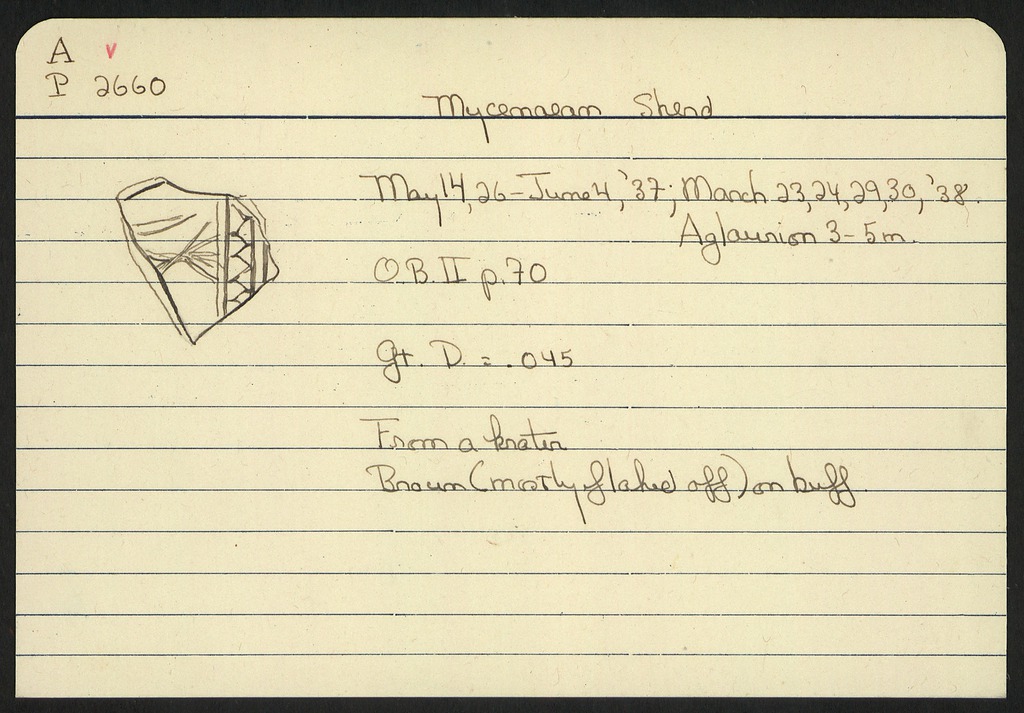 A v
P 2660
Mycenaean Sherd
May 14, 26-June 4, '37; March 23, 24, 29, 30, '38.
Aglaurion 3-5m.
O.B. II p. 70
Gt. D. = .045
From a krater
Brown (mostly flaked off) on buff.